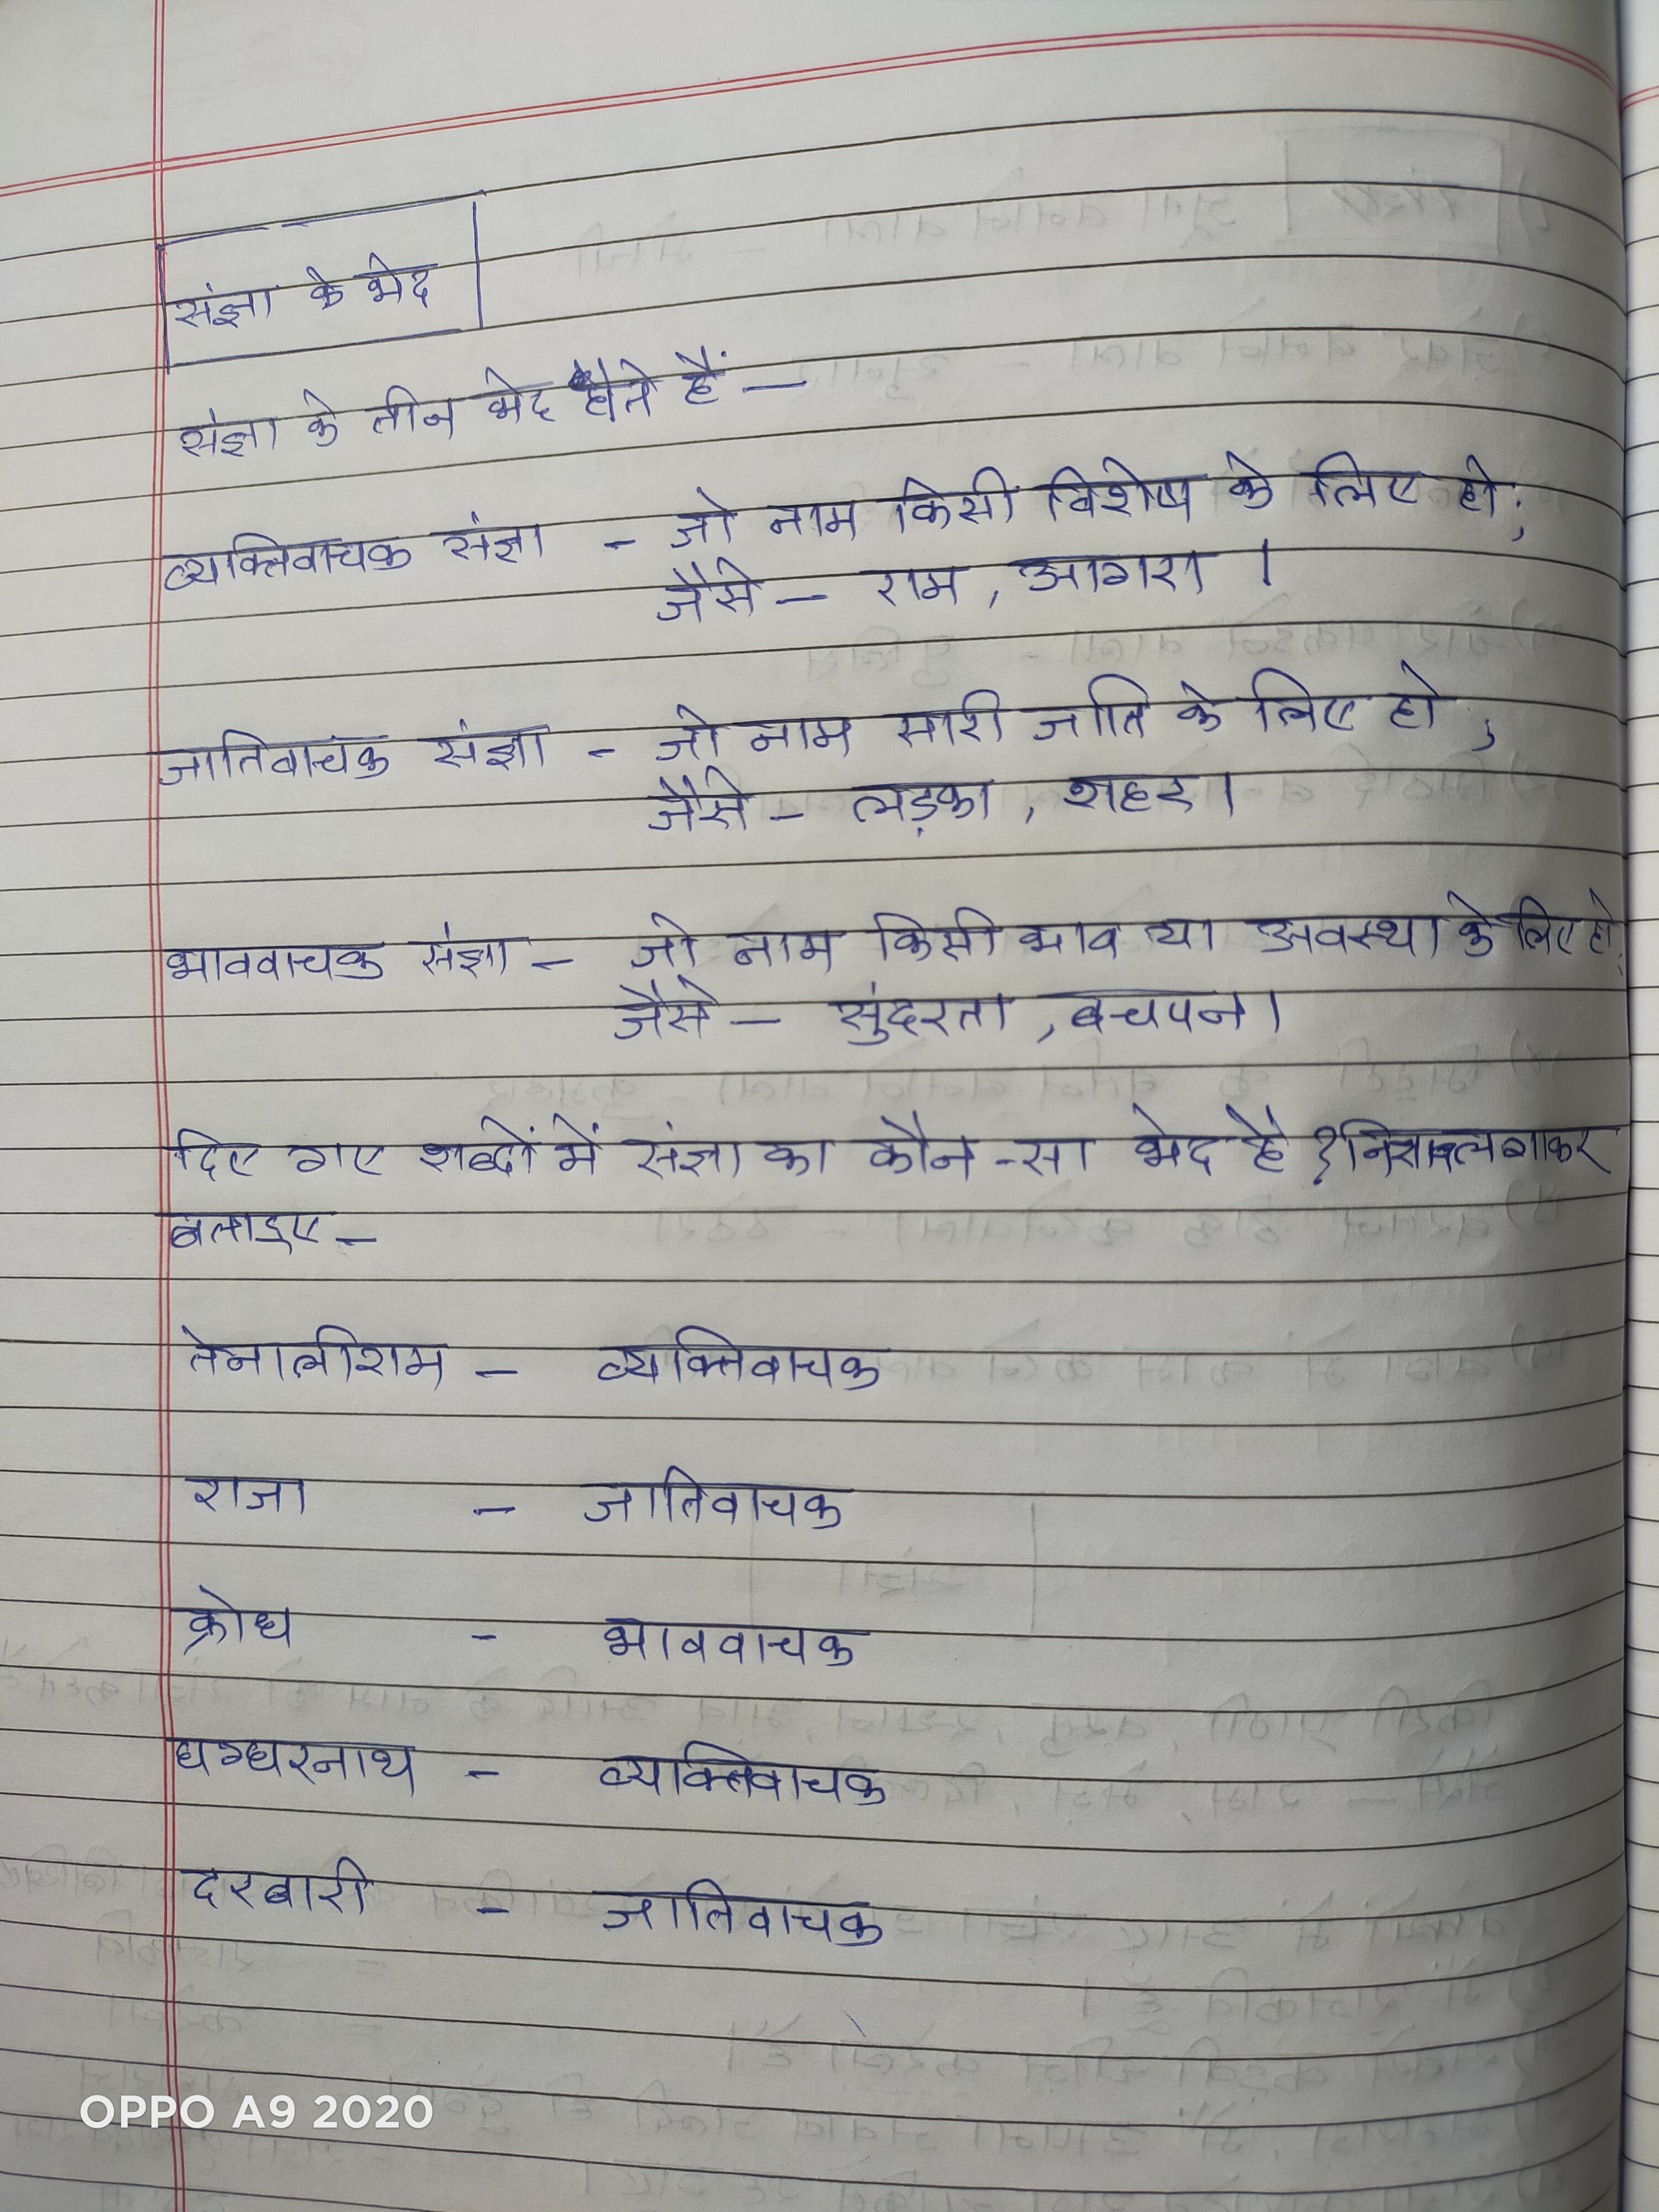 संज्ञा के भेद
संज्ञा के तीन भेद होते हैं —
व्यक्तिवाचक संज्ञा - जो नाम किसी विशेष के लिए हो;
जैसे — राम, आगरा ।
जातिवाचक संज्ञा - जो नाम सारी जाति के लिए हो;
जैसे - लड़का, शहर।
भाववाचक संज्ञा - जो नाम किसी भाव या अवस्था के लिए हो;
जैसे — सुंदरता, बचपन।
दिए गए शब्दों में संज्ञा का कौन-सा भेद है ?
बताइए -
तेनालीराम - व्यक्तिवाचक
राजा - जातिवाचक
क्रोध - भाववाचक
घग्घरनाथ - व्यक्तिवाचक
दरबारी - जातिवाचक
OPPO A9 2020